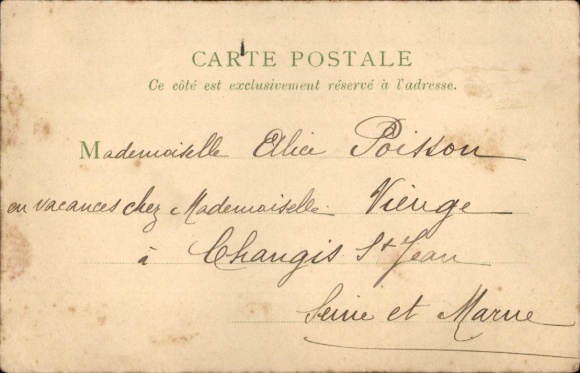 CARTE POSTALE
Ce côté est exclusivement réservé à l'adresse.
Mademoiselle Alice Poisson
en vacances chez Mademoiselle Vienge
à Changis St Jean
Seine et Marne